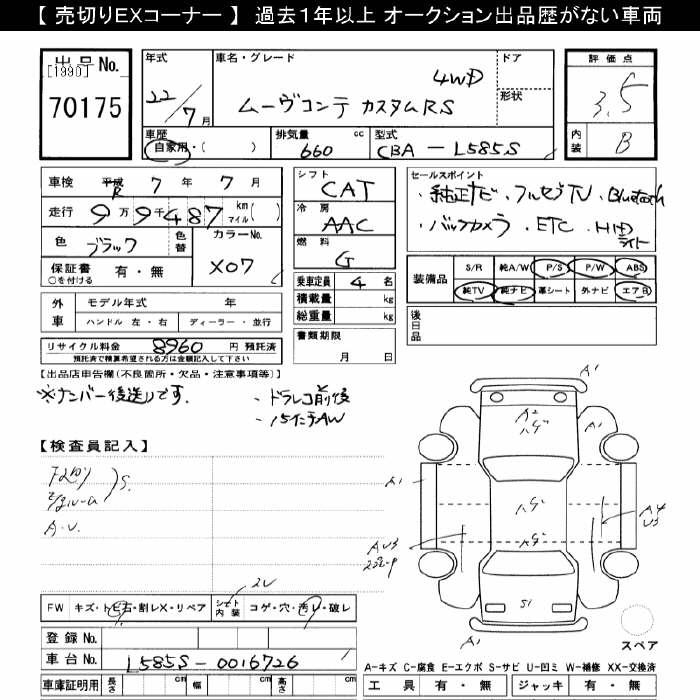 【 売切りEXコーナー 】 過去１年以上 オークション出品歴がない車両
出品 No.
[1990]
70175
年式
22/7月
車名・グレード
4WD
ムーヴコンテ カスタムRS
ドア
形状
車歴
自家用・( )
排気量 cc
660
型式
CBA - L585S
評価点
3.5
内装
B
車検 平成 R 7 年 7 月
走行 9万9千487 km マイル( )
色 ブラック 色替
カラーNo.
X07
保証書 ○を付ける 有・無
外車 モデル年式 年
ハンドル 左・右 ディーラー・並行
リサイクル料金 8960 円 預託済
預託済で積算希望される方は金額記入して下さい
シフト
CAT
冷房
AAC
燃料
G
乗車定員 4 名
積載量 kg
総重量 kg
書類期限
月 日
セールスポイント
・純正ナビ ・フルセグTV ・Bluetooth
・バックカメラ ・ETC ・HID ライト
装備品
S/R 純A/W P/S P/W ABS
純TV 純ナビ 革シート 外ナビ エアB
後日品
【出品店申告欄(不良箇所・欠品・注意事項等)】
※ナンバー後送りです.
・ドラレコ前後
・15インチAW
【検査員記入】
S.
A・U.
2U
FW キズ・トビ石・割レX・リペア シート内装 コゲ・穴・汚レ・破レ
登録 No.
車台 No. L585S-0016726
車庫証明用 長さ cm 幅 cm 高さ cm
A1
A2
A1
A1
A4
U3
AU3
S1
A1
スペア
A-キズ C-腐食 E-エクボ S-サビ U-凹ミ W-補修 XX-交換済
工具 有・無 ジャッキ 有・無